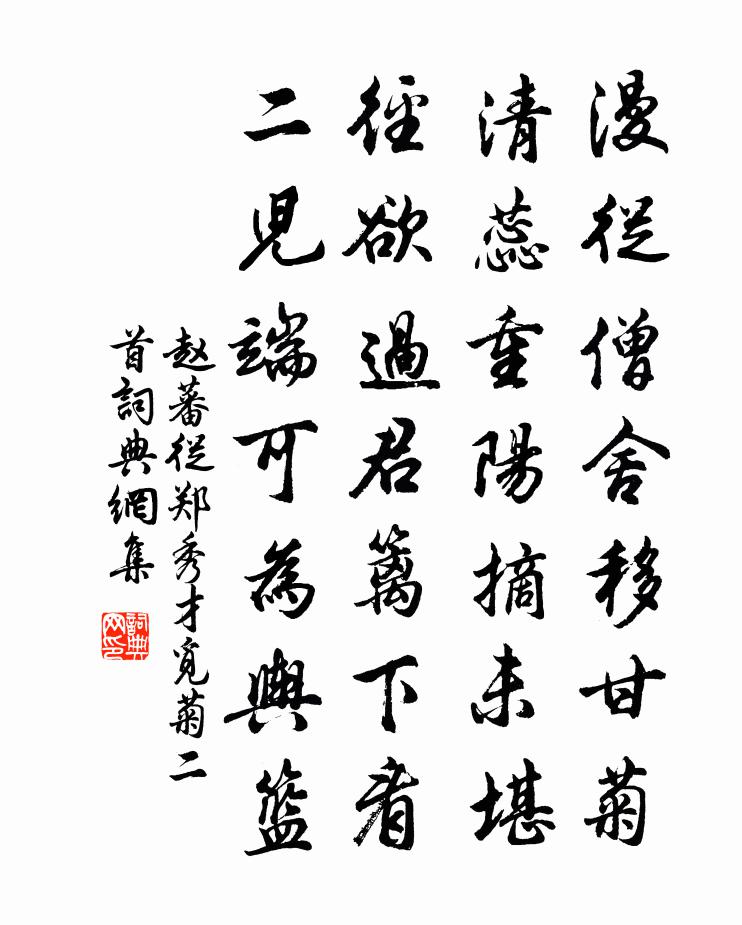 漫從僧舍移甘菊
清蕊重陽摘未堪
徑欲過君篱下看
二児端可為輿籃
赵蕃從郑秀才覓菊二
首詞典網集
詞典网印